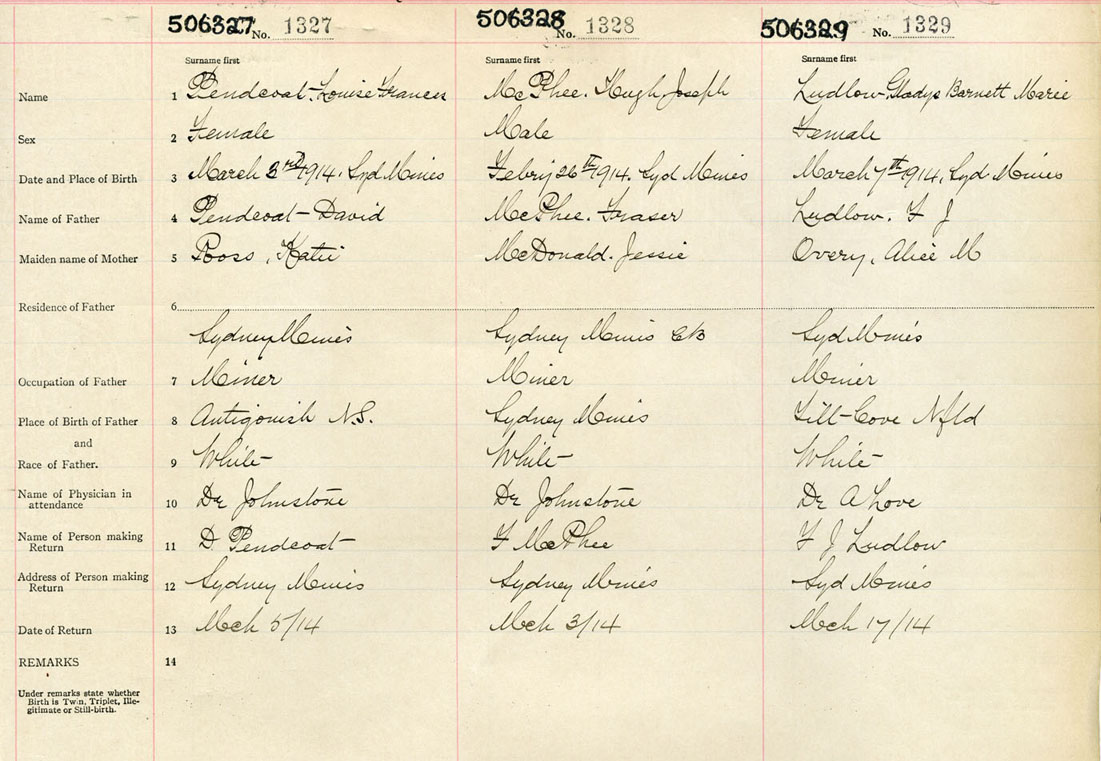 506327 No. 1327 506328 No. 1328 506329 No. 1329
Surname first Surname first Surname first
Name 1 Pendcoat, Louise Frances McPhee. Hugh Joseph Ludlow, Gladys Barnett Marie
Sex 2 Female Male Female
Date and Place of Birth 3 March 3rd 1914, Syd Mines Febry 26th 1914, Syd Mines March 7th 1914, Syd Mines
Name of Father 4 Pendcoat David McPhee. Fraser Ludlow. F J
Maiden name of Mother 5 Ross, Katie McDonald. Jessie Overy, Alice M
Residence of Father 6
Sydney Mines Sydney Mines CB Syd Mines
Occupation of Father 7 Miner Miner Miner
Place of Birth of Father 8 Antigonish N.S. Sydney Mines Tilt Cove Nfld
and
Race of Father. 9 White White White
Name of Physician in
attendance 10 Dr Johnstone Dr Johnstone Dr A Love
Name of Person making
Return 11 D Pendcoat F McPhee F J Ludlow
Address of Person making
Return 12 Sydney Mines Sydney Mines Syd Mines
Date of Return 13 Mch 5/14 Mch 3/14 Mch 17/14
REMARKS 14
Under remarks state whether
Birth is Twin, Triplet, Ille-
gitimate or Still-birth.